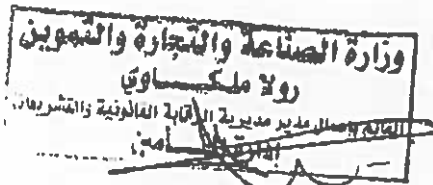 وزارة الصناعة والتجارة والتموين
رولا ملكاوي
القائم بأعمال مدير مديرية الرقابة القانونية والتشريعات
إدارة التأمين